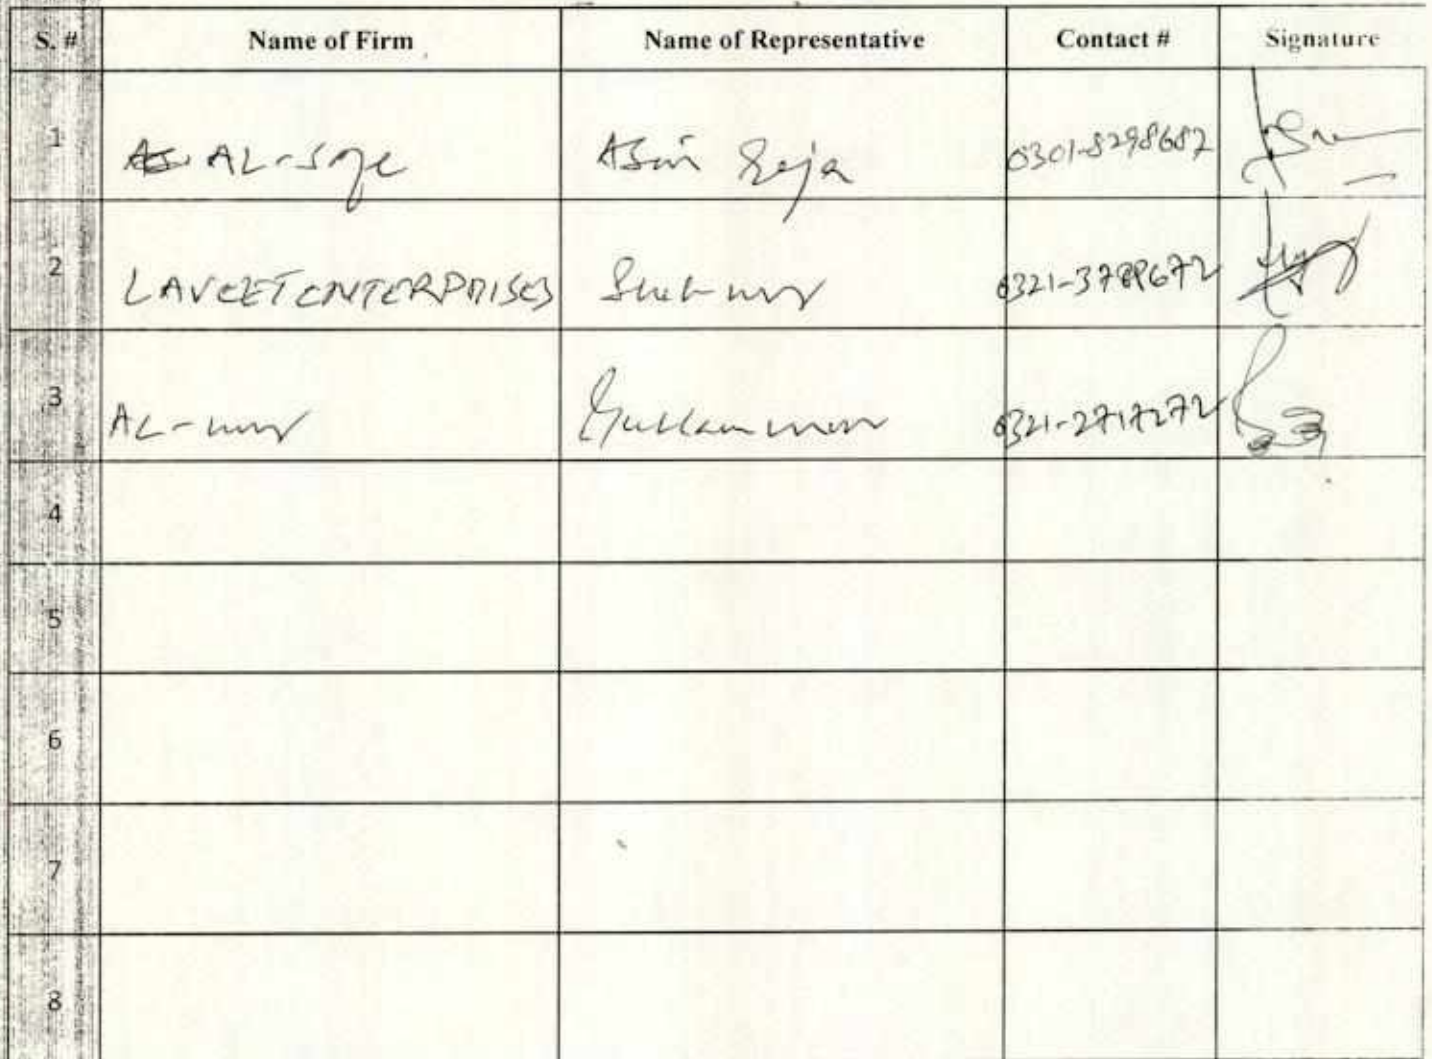 S. # Name of Firm Name of Representative Contact # Signature
1 AL-Saje Asim Raja 0301-8298687
2 LAVEET ENTERPRISES 0321-3789672
3 AL-nur Muhammad 0321-2717272
4
5
6
7
8